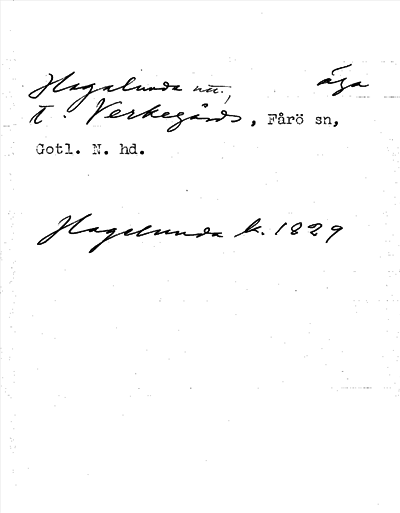 Hagalunda nu., äga
t. Verkegårds, Fårö sn,
Gotl. N. hd.
Hagelunda k. 1829